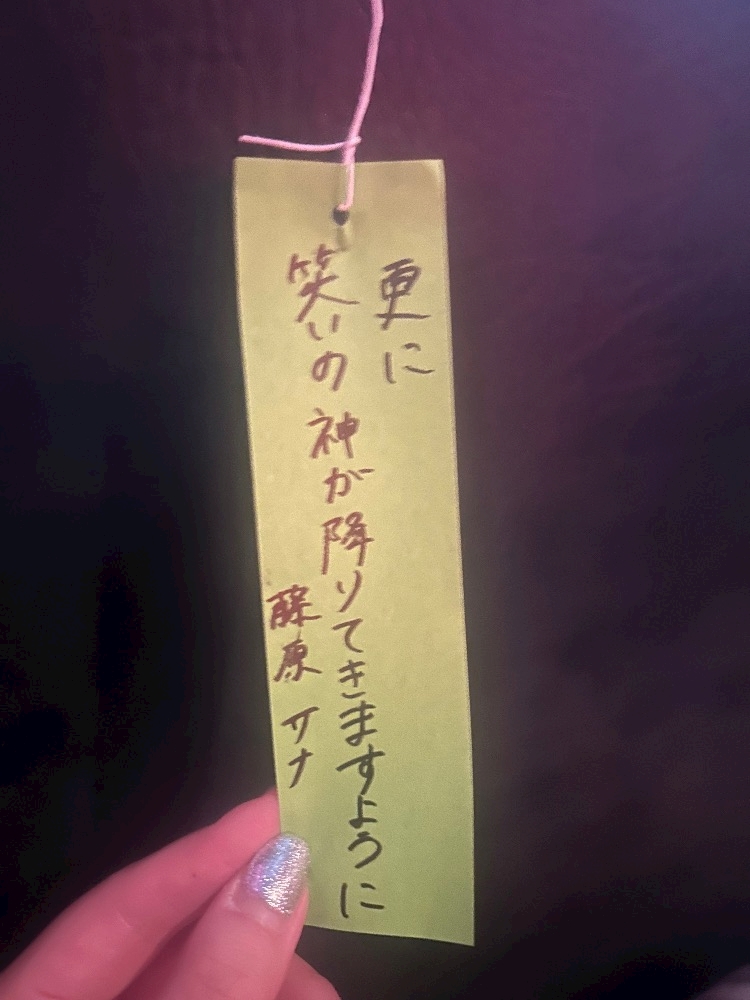 更に
笑いの神が降りてきますように
藤原サナ